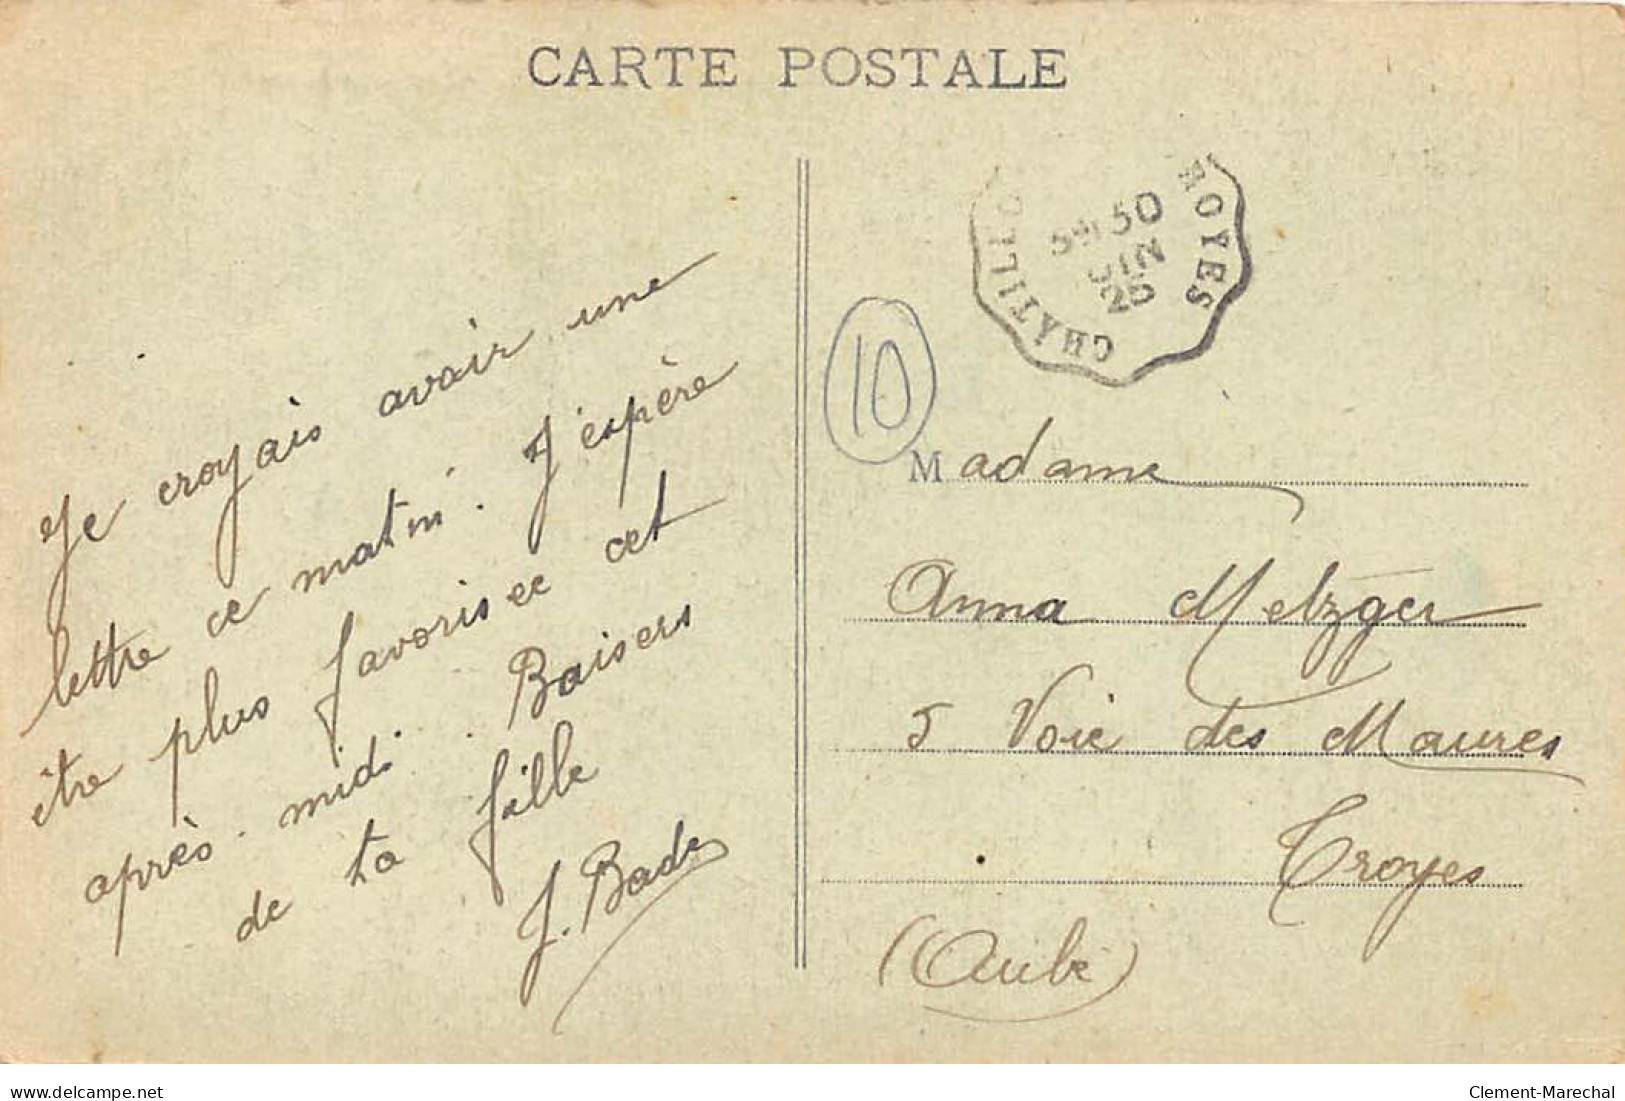 CARTE POSTALE
Je croyais avoir une
lettre ce matin. J'espère
être plus favorisée cet
après-midi. Baisers
de ta fille
J. Bade
CHATILLO
ROYES
50
JUIN
20
10
Madame
Anna Metzger
5 Voie des Maures
Troyes
(Aube)
delcampe.net
Clement-Marechal